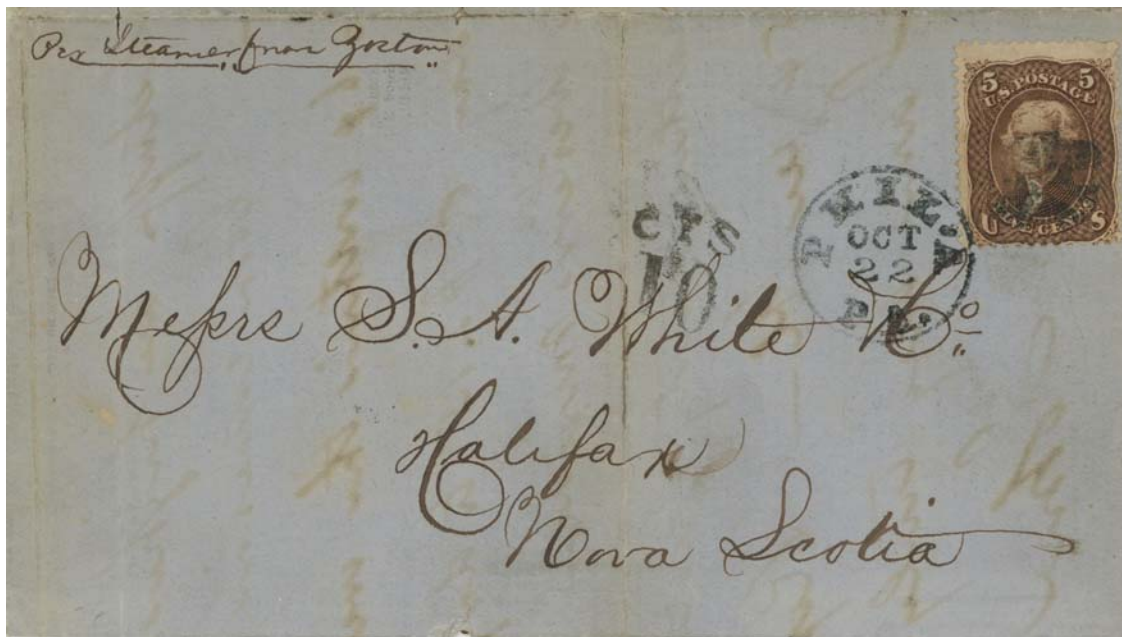 Per Steamer from Boston
5 5
U.S. POSTAGE
FIVE CENTS
U S
PHIL'A
OCT
22
PA.
CTS
10
Messrs S. A. White & Co
Halifax
Nova Scotia